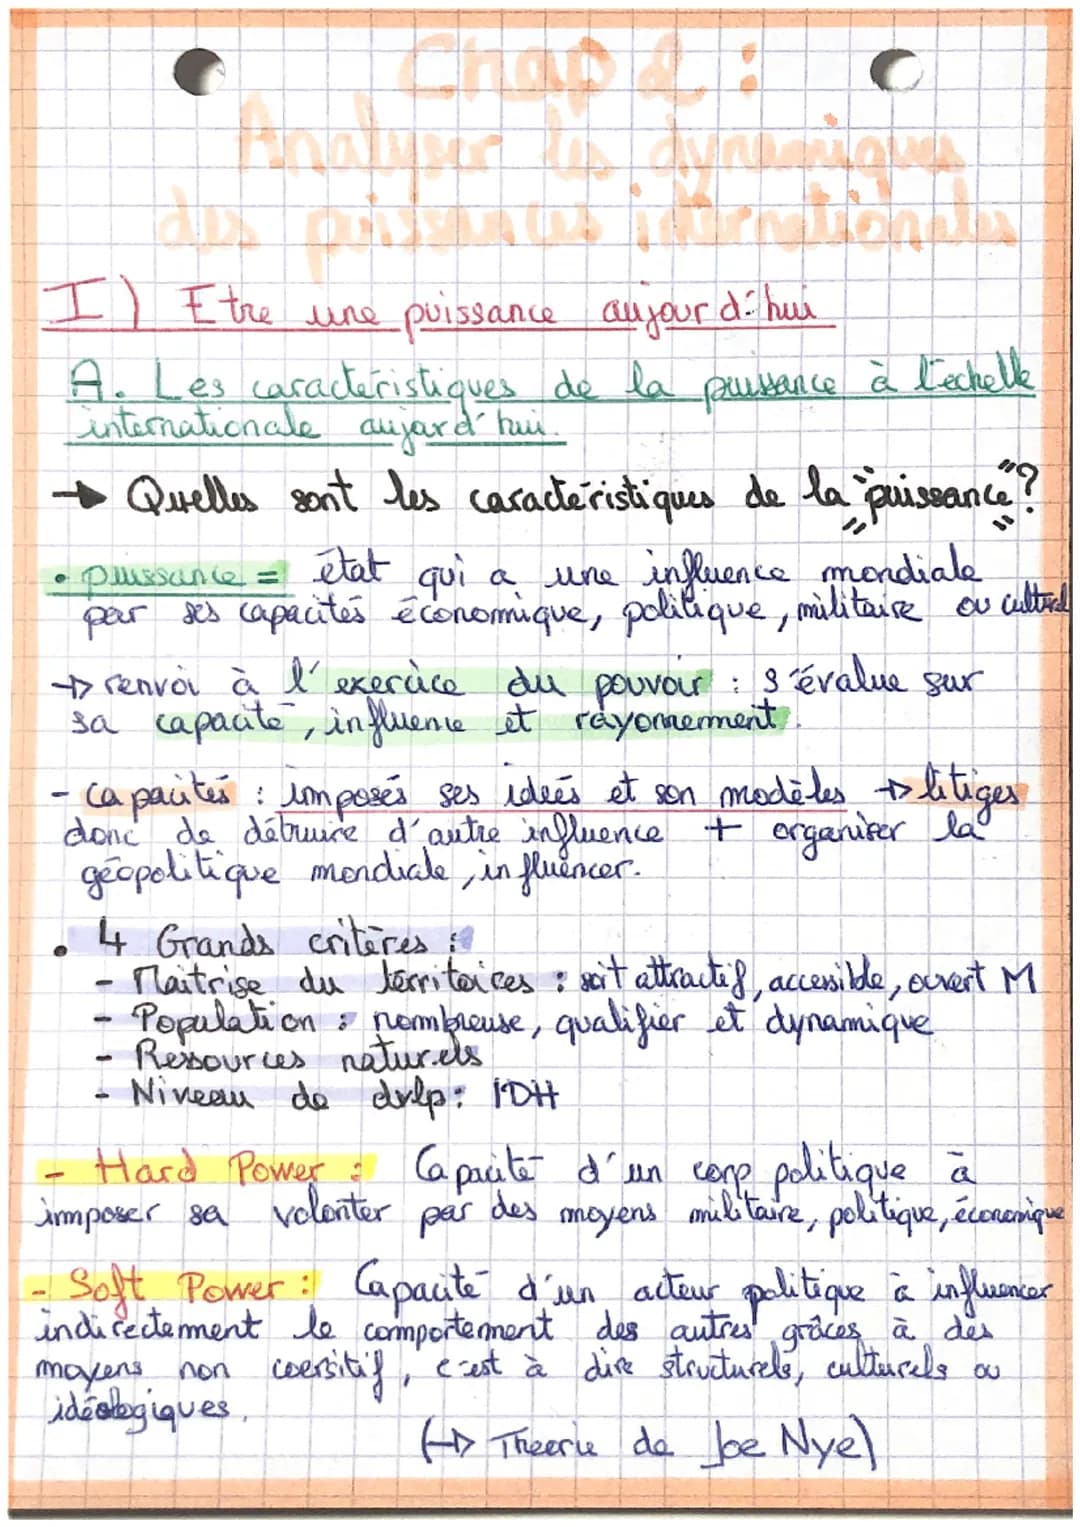 Chap 2 :
Analyser les dynamiques
des puissances internationales
I) Etre une puissance aujourd'hui
A. Les caractéristiques de la puissance à l'échelle
internationale aujard'hui.
→ Quelles sont les caractéristiques de la "puissance"?
• puissance = état qui a une influence mondiale
par ses capacités économique, politique, militaire ou culturel
→ renvoi à l'exercice du pouvoir : s'évalue sur
sa capacité, influence et rayonnement.
- capacités : imposés ses ideés et son modèles → litiges
donc de détruire d'autre influence + organiser la
géopolitique mondiale, influencer.
• 4 Grands critères :
- Maitrise du territoires : soit attractif, accessible, ouvert M
- Population : nombreuse, qualifier et dynamique
- Ressources naturels
- Niveau de dvlp : IDH
- Hard Power : Capacité d'un corp politique à
imposer sa volonter par des moyens militaire, politique, économique
- Soft Power : Capacité d'un acteur politique à influencer
indirectement le comportement des autres grâces à des
moyens non coersitif, c'est à dire structurels, culturels ou
idéologiques.
(→ Theorie de Joe Nye)